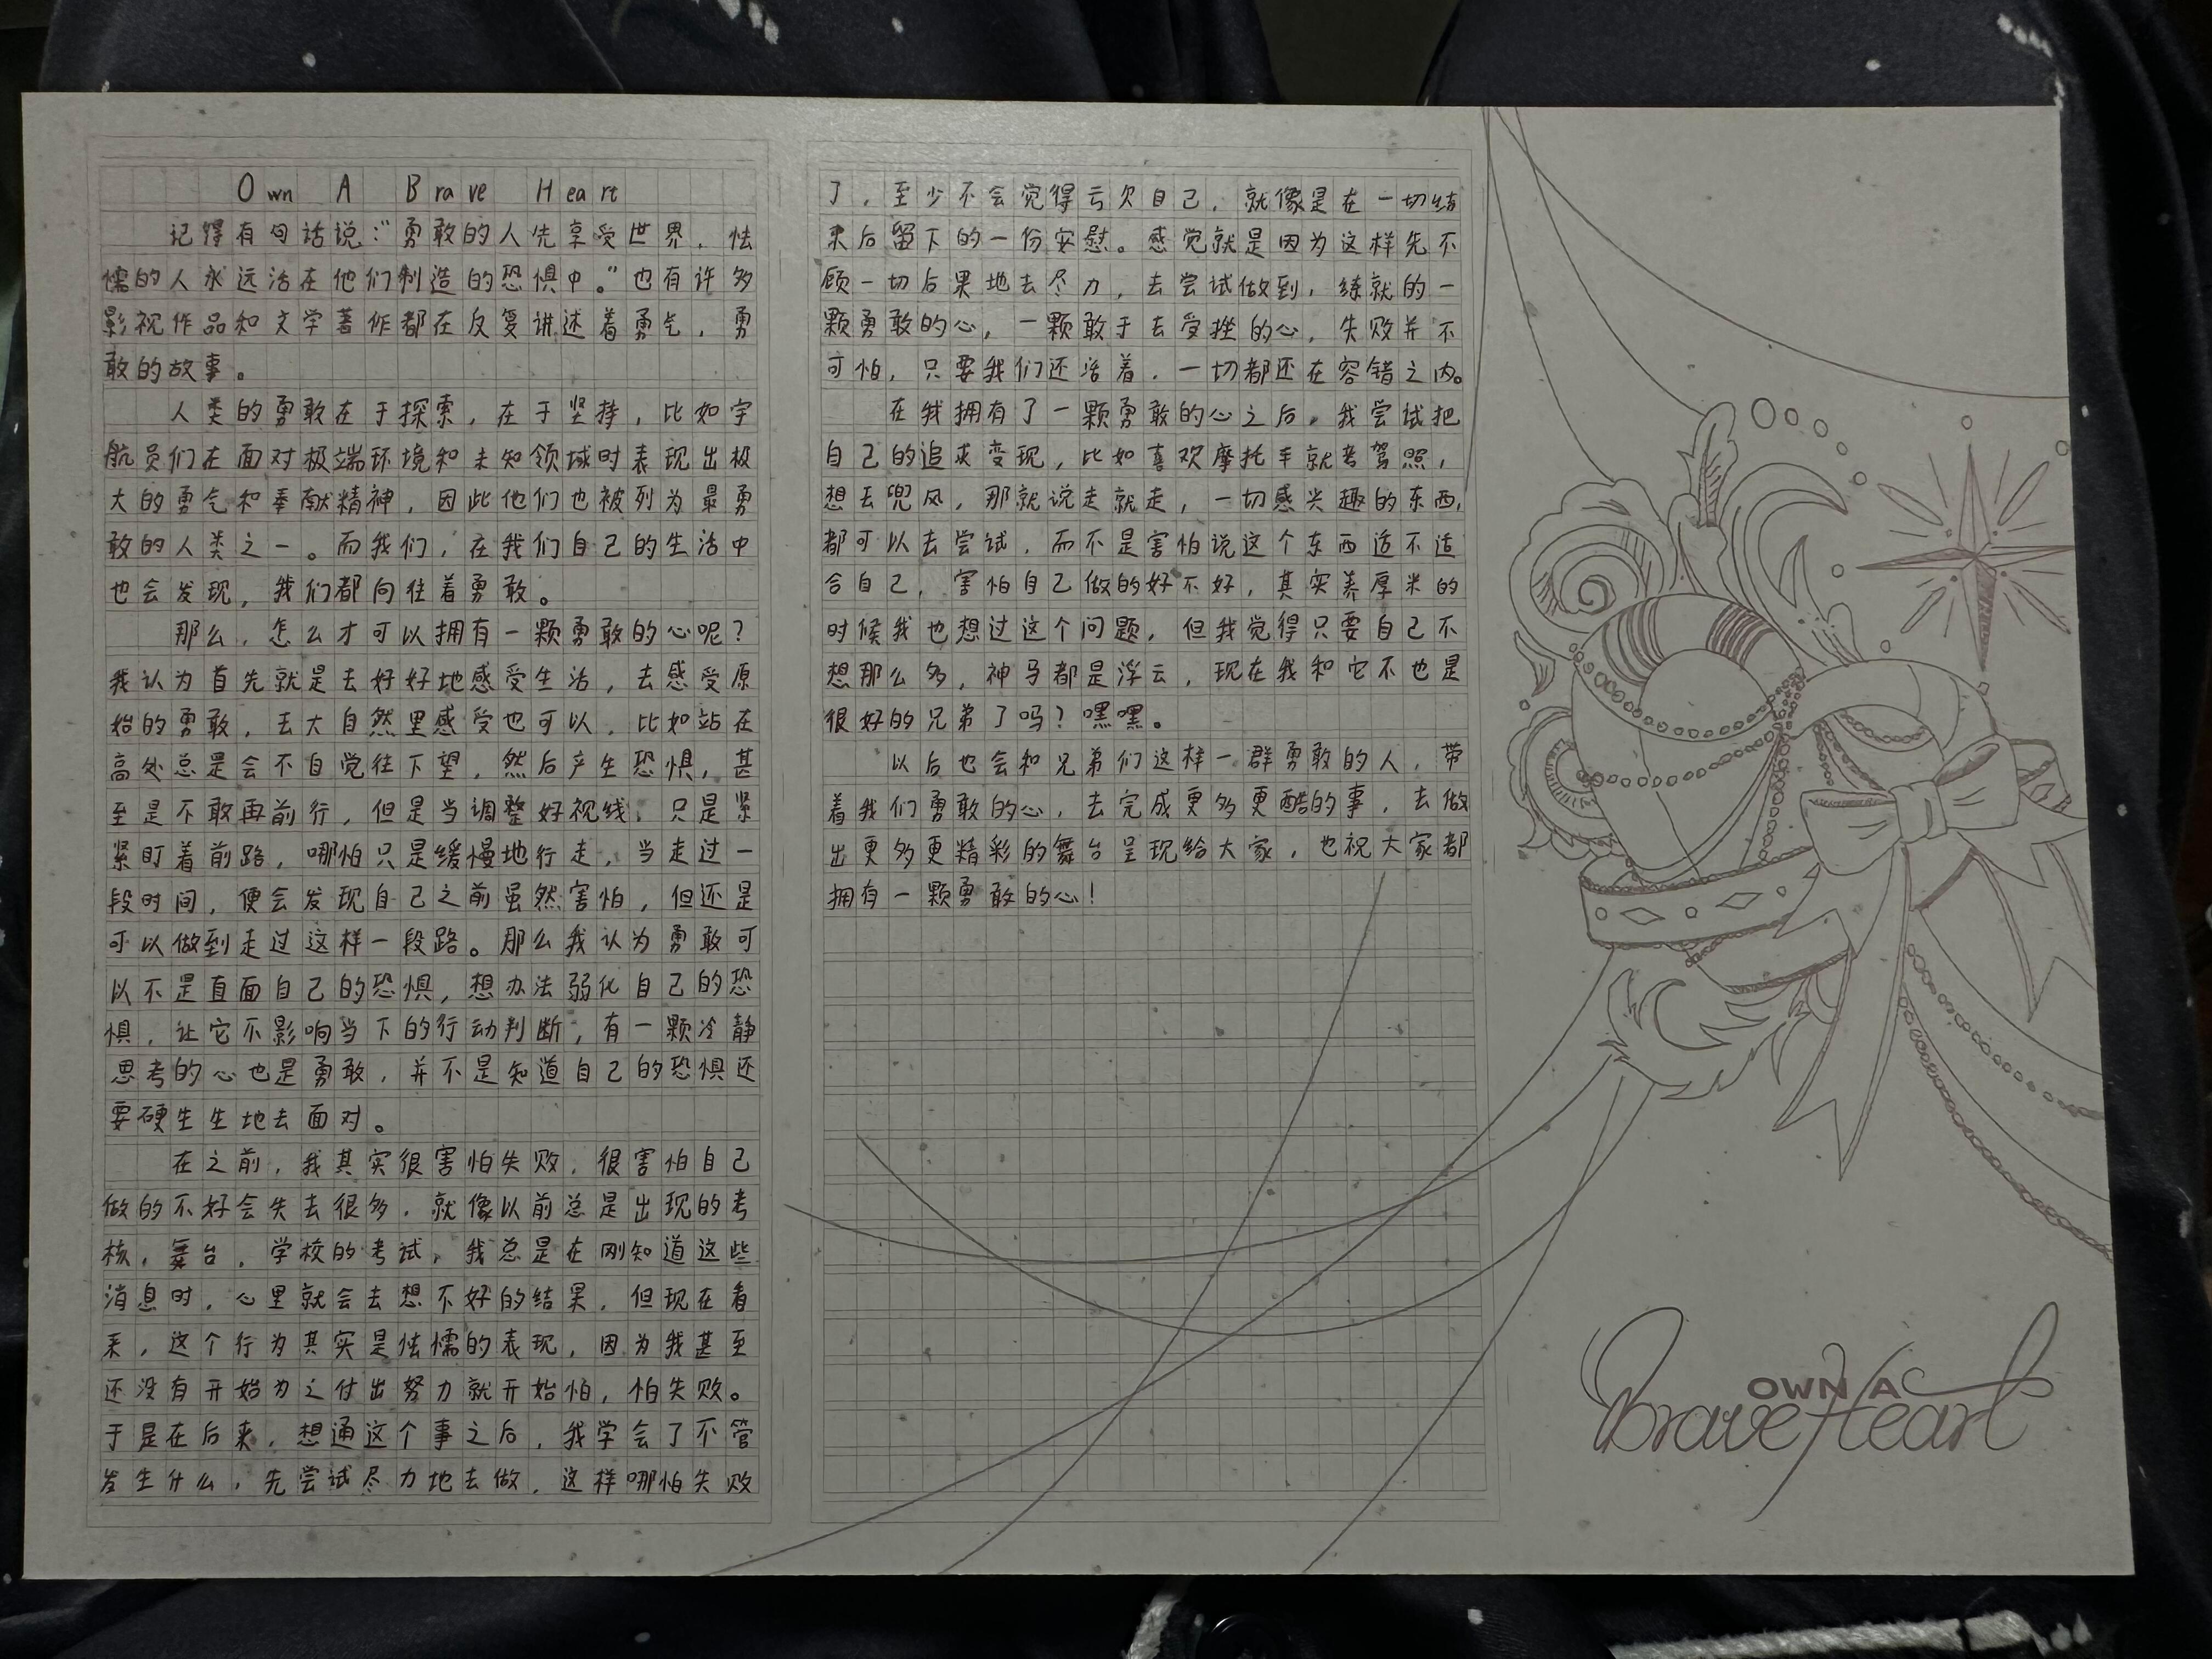 Own A Brave Heart
记得有句话说：“勇敢的人先享受世界，怯
懦的人永远活在他们制造的恐惧中。”也有许多
影视作品和文学著作都在反复讲述着勇气，勇
敢的故事。
人类的勇敢在于探索，在于坚持，比如宇
航员们在面对极端环境和未知领域时表现出极
大的勇气和奉献精神，因此他们也被列为最勇
敢的人类之一。而我们，在我们自己的生活中
也会发现，我们都向往着勇敢。
那么，怎么才可以拥有一颗勇敢的心呢？
我认为首先就是去好好地感受生活，去感受原
始的勇敢，去大自然里感受也可以，比如站在
高处总是会不自觉往下望，然后产生恐惧，甚
至是不敢再前行，但是当调整好视线，只是紧
紧盯着前路，哪怕只是缓慢地行走，当走过一
段时间，便会发现自己之前虽然害怕，但还是
可以做到走过这样一段路。那么我认为勇敢可
以不是直面自己的恐惧，想办法弱化自己的恐
惧，让它不影响当下的行动判断，有一颗冷静
思考的心也是勇敢，并不是知道自己的恐惧还
要硬生生地去面对。
在之前，我其实很害怕失败，很害怕自己
做的不好会失去很多，就像以前总是出现的考
核，舞台，学校的考试，我总是在刚知道这些
消息时，心里就会去想不好的结果，但现在看
来，这个行为其实是怯懦的表现，因为我甚至
还没有开始为之付出努力就开始怕，怕失败。
于是在后来，想通这个事之后，我学会了不管
发生什么，先尝试尽力地去做，这样哪怕失败
了，至少不会觉得亏欠自己，就像是在一切结
束后留下的一份安慰。感觉就是因为这样先不
顾一切后果地去尽力，去尝试做到，练就的一
颗勇敢的心，一颗敢于去受挫的心，失败并不
可怕，只要我们还活着，一切都还在容错之内。
在我拥有了一颗勇敢的心之后，我尝试把
自己的追求变现，比如喜欢摩托车就考驾照，
想去兜风，那就说走就走，一切感兴趣的东西，
都可以去尝试，而不是害怕说这个东西适不适
合自己，害怕自己做的好不好，其实养厚米的
时候我也想过这个问题，但我觉得只要自己不
想那么多，神马都是浮云，现在我和它不也是
很好的兄弟了吗？嘿嘿。
以后也会和兄弟们这样一群勇敢的人，带
着我们勇敢的心，去完成更多更酷的事，去做
出更多更精彩的舞台呈现给大家，也祝大家都
拥有一颗勇敢的心！
OWN A
Brave Heart